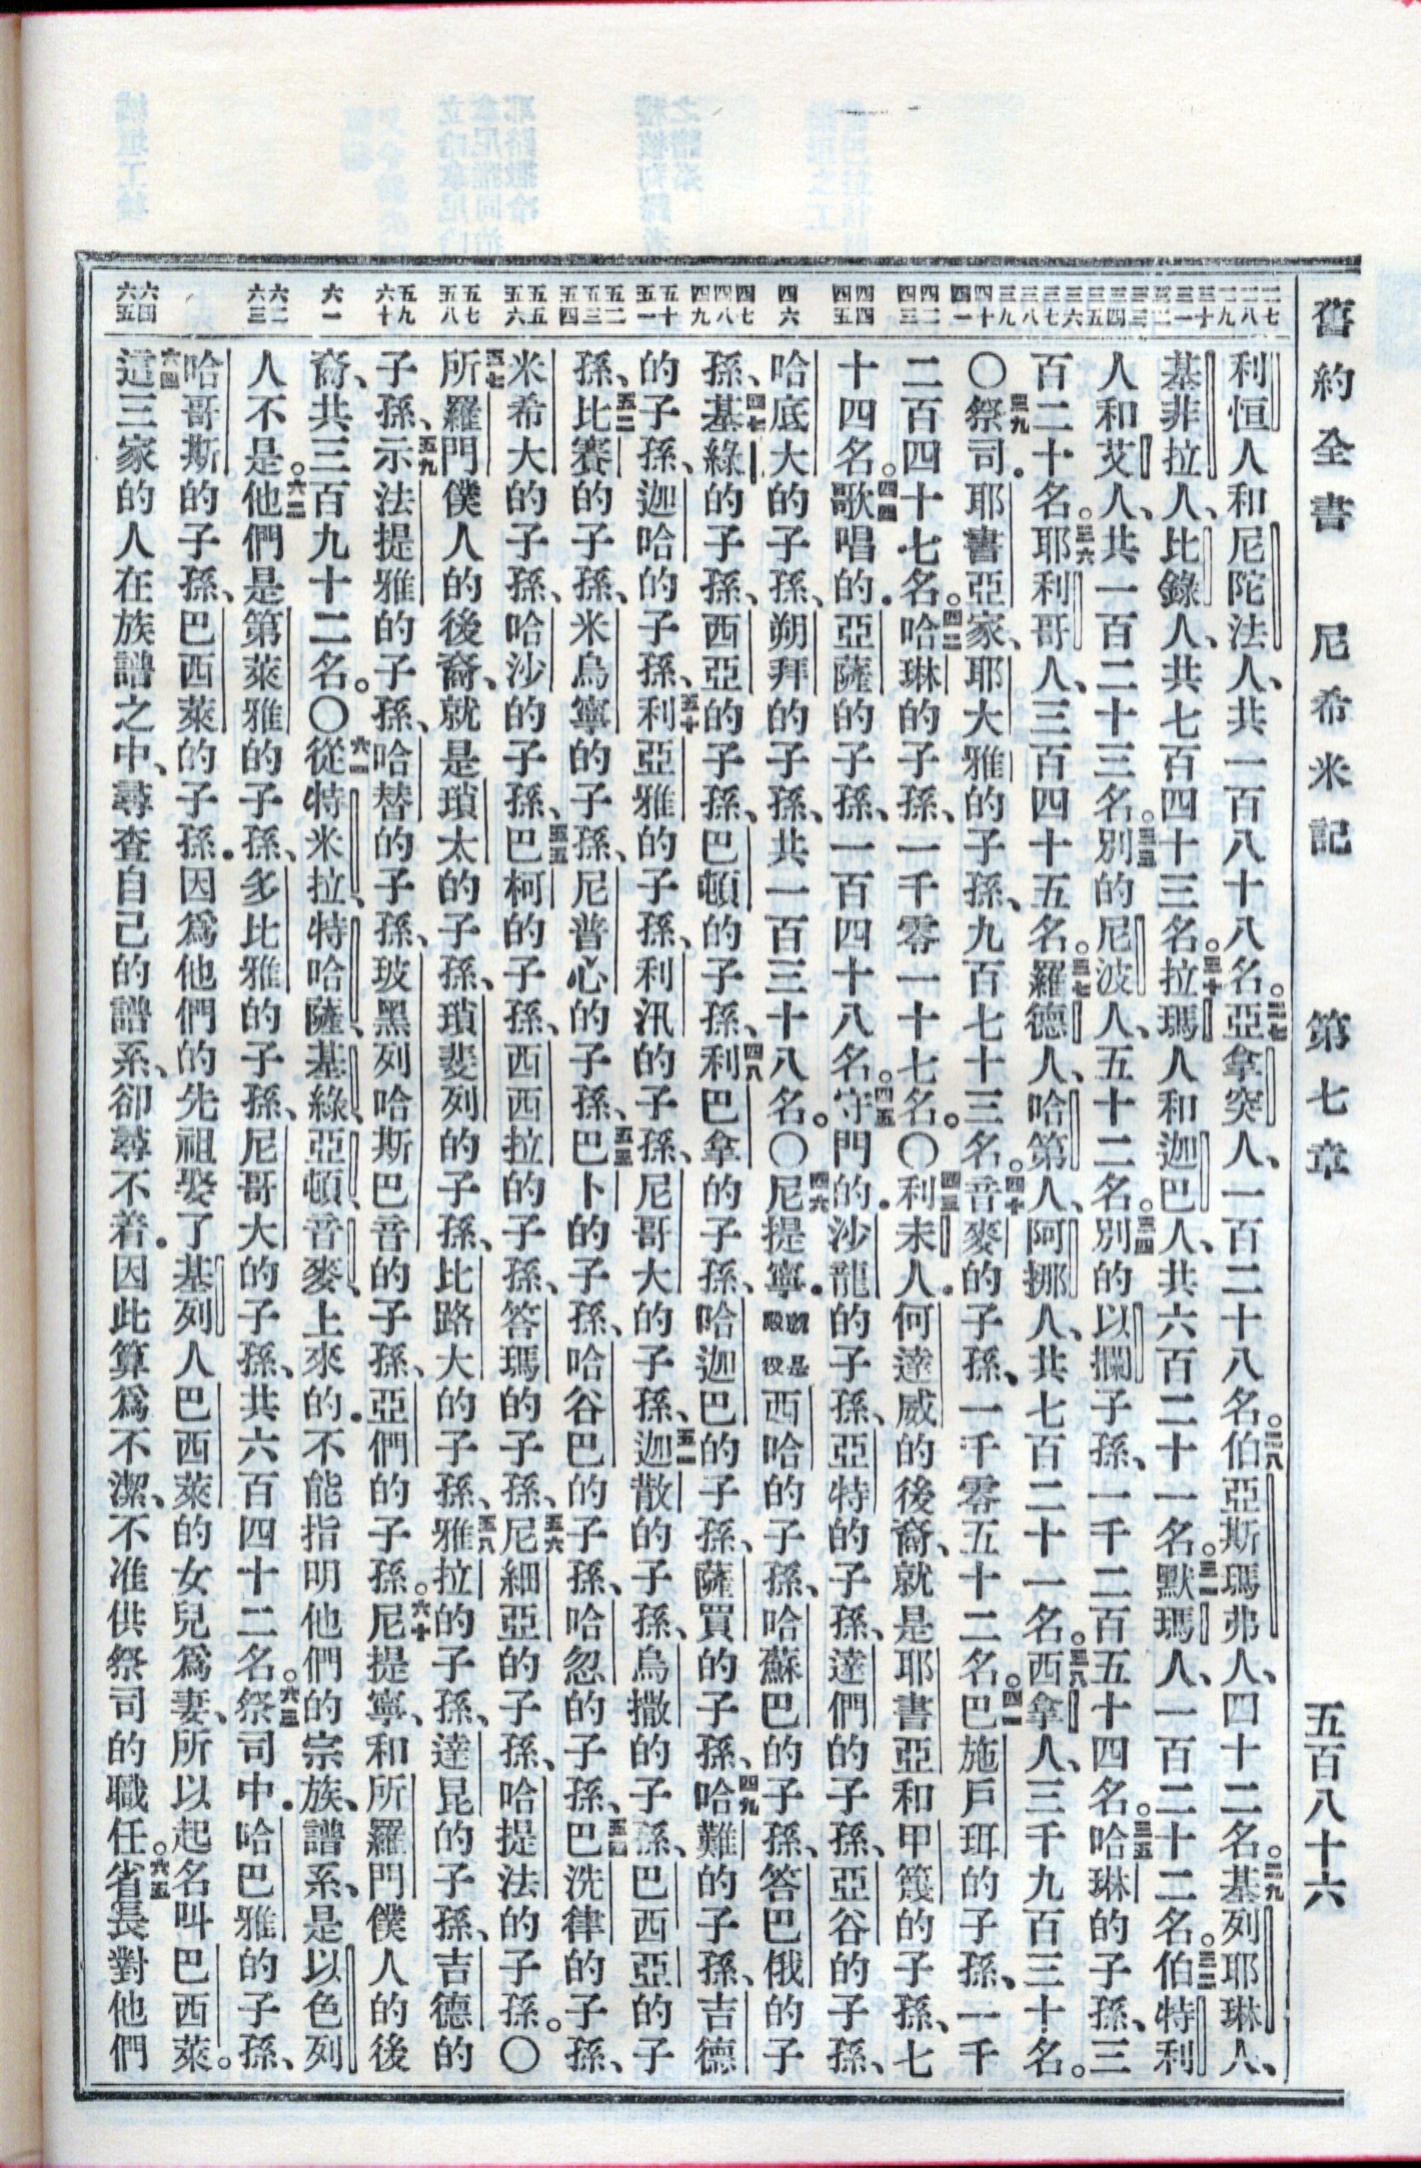 舊約全書 尼希米記 第七章 五百八十六
二七 二八 二九 三十 三一 三二 三三 三四 三五 三六 三七 三八 三九 四十 四一 四二 四三 四四 四五 四六 四七 四八 四九 五十 五一 五二 五三 五四 五五 五六 五七 五八 五九 六十 六一 六二 六三 六四 六五
利恒人和尼陀法人、共一百八十八名。二七亞拿突人、一百二十八名。二八伯亞斯瑪弗人、四十二名。二九基列耶琳人、
基非拉人、比錄人、共七百四十三名。三十拉瑪人和迦巴人、共六百二十一名。三一默瑪人、一百二十二名。三二伯特利
人和艾人、共一百二十三名。三三別的尼波人、五十二名。三四別的以攔子孫、一千二百五十四名。三五哈琳的子孫、三
百二十名。三六耶利哥人、三百四十五名。三七羅德人、哈第人、阿挪人、共七百二十一名。三八西拿人、三千九百三十名。
〇三九祭司．耶書亞家、耶大雅的子孫、九百七十三名。四十音麥的子孫、一千零五十二名。四一巴施戶珥的子孫、一千
二百四十七名。四二哈琳的子孫、一千零一十七名。〇四三利未人．何達威的後裔、就是耶書亞和甲篾的子孫、七
十四名。四四歌唱的．亞薩的子孫、一百四十八名。四五守門的．沙龍的子孫、亞特的子孫、達們的子孫、亞谷的子孫、
哈底大的子孫、朔拜的子孫、共一百三十八名。〇四六尼提寧．就是殿役西哈的子孫、哈蘇巴的子孫、答巴俄的子
孫、四七基綠的子孫、西亞的子孫、巴頓的子孫、四八利巴拿的子孫、哈迦巴的子孫、薩買的子孫、四九哈難的子孫、吉德
的子孫、迦哈的子孫、五十利亞雅的子孫、利汛的子孫、尼哥大的子孫、五一迦散的子孫、烏撒的子孫、巴西亞的子
孫、五二比賽的子孫、米烏寧的子孫、尼普心的子孫、五三巴卜的子孫、哈谷巴的子孫、哈忽的子孫、五四巴洗律的子孫、
米希大的子孫、哈沙的子孫、五五巴柯的子孫、西西拉的子孫、答瑪的子孫、五六尼細亞的子孫、哈提法的子孫。〇
五七所羅門僕人的後裔、就是瑣太的子孫、瑣斐列的子孫、比路大的子孫、五八雅拉的子孫、達昆的子孫、吉德的
子孫、五九示法提雅的子孫、哈替的子孫、玻黑列哈斯巴音的子孫、亞們的子孫。六十尼提寧、和所羅門僕人的後
裔、共三百九十二名。〇六一從特米拉、特哈薩、基綠、亞頓、音麥、上來的．不能指明他們的宗族、譜系、是以色列
人不是。六二他們是第萊雅的子孫、多比雅的子孫、尼哥大的子孫、共六百四十二名。六三祭司中．哈巴雅的子孫、
哈哥斯的子孫、巴西萊的子孫．因爲他們的先祖娶了基列人巴西萊的女兒爲妻、所以起名叫巴西萊。
六四這三家的人在族譜之中、尋查自己的譜系、卻尋不着．因此算爲不潔、不准供祭司的職任。六五省長對他們